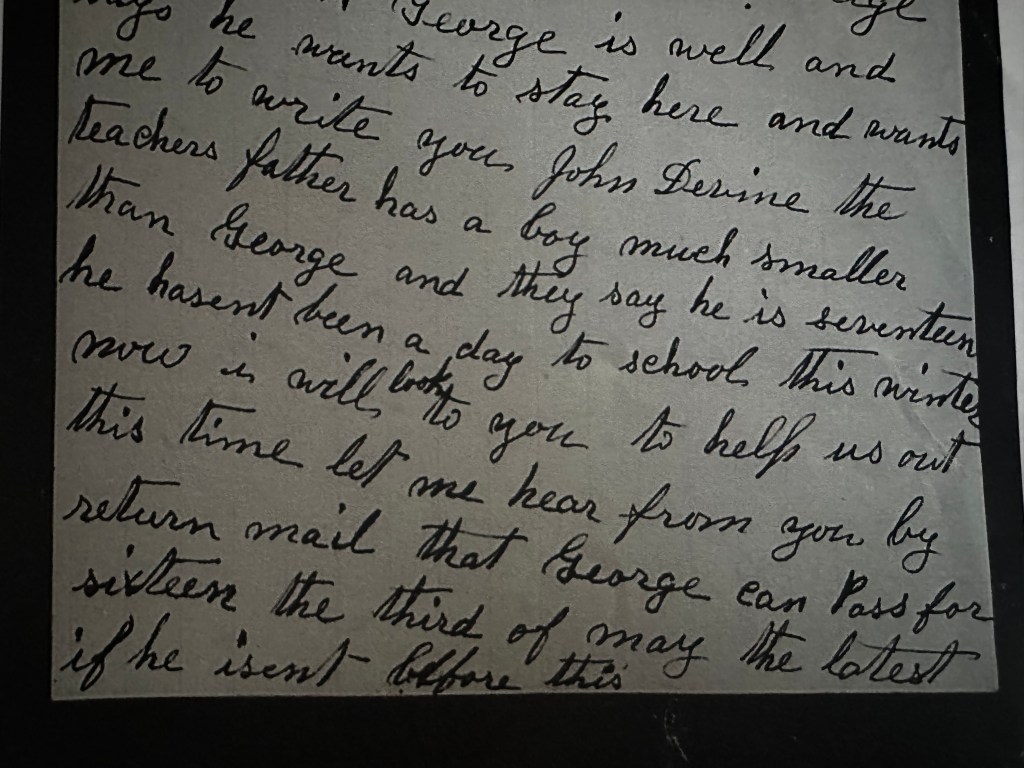 George is well and
he wants to stay here and wants
me to write you John Devine the
teachers father has a boy much smaller
than George and they say he is seventeen
he hasent been a day to school this winter
now is will look to you to help us out
this time let me hear from you by
return mail that George can Pass for
sixteen the third of may the latest
if he isent before this